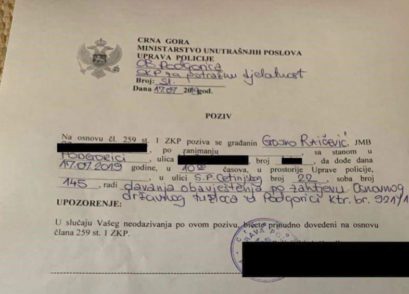 CRNA GORA
MINISTARSTVO UNUTRAŠNJIH POSLOVA
UPRAVA POLICIJE
OB Podgorica
djelatnost
Broj: sl.
Dana 17.07 god.
POZIV
Na osnovu čl. 259 st. 1 ZKP poziva se građanin Gojko Raičević, JMB
, po zanimanju sa stanom u
PODGORICI, ulica broj , da dođe dana
17.07.2019 godine, u 10 časova, u prostorije Uprave policije,
, u ulici S.P. Cetinjskog broj 22, soba broj
145, radi davanja obavještenja po zahtjevu Osnovnog
državnog tužioca u Podgorici Ktr. br. 921/1
UPOZORENJE:
U slučaju Vašeg neodazivanja po ovom pozivu, bićete prinudno dovedeni na osnovu
člana 259 st. 1 ZKP.